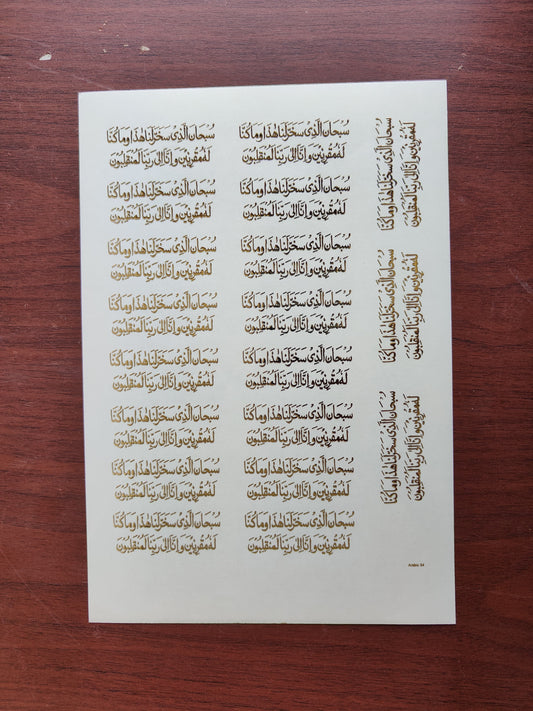 سُبحَانَ الَّذِىْ سَخَّرَلَنَا هٰذَا وَمَا كُنَّا
لَهٗ مُقْرِنِيْن وَاِنَّا اِلىٰ رَبِّنَا لَمُنْقَلِبُون
سُبحَانَ الَّذِىْ سَخَّرَلَنَا هٰذَا وَمَا كُنَّا
لَهٗ مُقْرِنِيْن وَاِنَّا اِلىٰ رَبِّنَا لَمُنْقَلِبُون
سُبحَانَ الَّذِىْ سَخَّرَلَنَا هٰذَا وَمَا كُنَّا
لَهٗ مُقْرِنِيْن وَاِنَّا اِلىٰ رَبِّنَا لَمُنْقَلِبُون
سُبحَانَ الَّذِىْ سَخَّرَلَنَا هٰذَا وَمَا كُنَّا
لَهٗ مُقْرِنِيْن وَاِنَّا اِلىٰ رَبِّنَا لَمُنْقَلِبُون
سُبحَانَ الَّذِىْ سَخَّرَلَنَا هٰذَا وَمَا كُنَّا
لَهٗ مُقْرِنِيْن وَاِنَّا اِلىٰ رَبِّنَا لَمُنْقَلِبُون
سُبحَانَ الَّذِىْ سَخَّرَلَنَا هٰذَا وَمَا كُنَّا
لَهٗ مُقْرِنِيْن وَاِنَّا اِلىٰ رَبِّنَا لَمُنْقَلِبُون
سُبحَانَ الَّذِىْ سَخَّرَلَنَا هٰذَا وَمَا كُنَّا
لَهٗ مُقْرِنِيْن وَاِنَّا اِلىٰ رَبِّنَا لَمُنْقَلِبُون
سُبحَانَ الَّذِىْ سَخَّرَلَنَا هٰذَا وَمَا كُنَّا
لَهٗ مُقْرِنِيْن وَاِنَّا اِلىٰ رَبِّنَا لَمُنْقَلِبُون
سُبحَانَ الَّذِىْ سَخَّرَلَنَا هٰذَا وَمَا كُنَّا
لَهٗ مُقْرِنِيْن وَاِنَّا اِلىٰ رَبِّنَا لَمُنْقَلِبُون
سُبحَانَ الَّذِىْ سَخَّرَلَنَا هٰذَا وَمَا كُنَّا
لَهٗ مُقْرِنِيْن وَاِنَّا اِلىٰ رَبِّنَا لَمُنْقَلِبُون
سُبحَانَ الَّذِىْ سَخَّرَلَنَا هٰذَا وَمَا كُنَّا
لَهٗ مُقْرِنِيْن وَاِنَّا اِلىٰ رَبِّنَا لَمُنْقَلِبُون
سُبحَانَ الَّذِىْ سَخَّرَلَنَا هٰذَا وَمَا كُنَّا
لَهٗ مُقْرِنِيْن وَاِنَّا اِلىٰ رَبِّنَا لَمُنْقَلِبُون
سُبحَانَ الَّذِىْ سَخَّرَلَنَا هٰذَا وَمَا كُنَّا
لَهٗ مُقْرِنِيْن وَاِنَّا اِلىٰ رَبِّنَا لَمُنْقَلِبُون
سُبحَانَ الَّذِىْ سَخَّرَلَنَا هٰذَا وَمَا كُنَّا
لَهٗ مُقْرِنِيْن وَاِنَّا اِلىٰ رَبِّنَا لَمُنْقَلِبُون
سُبحَانَ الَّذِىْ سَخَّرَلَنَا هٰذَا وَمَا كُنَّا
لَهٗ مُقْرِنِيْن وَاِنَّا اِلىٰ رَبِّنَا لَمُنْقَلِبُون
سُبحَانَ الَّذِىْ سَخَّرَلَنَا هٰذَا وَمَا كُنَّا
لَهٗ مُقْرِنِيْن وَاِنَّا اِلىٰ رَبِّنَا لَمُنْقَلِبُون
سُبحَانَ الَّذِىْ سَخَّرَلَنَا هٰذَا وَمَا كُنَّا
لَهٗ مُقْرِنِيْن وَاِنَّا اِلىٰ رَبِّنَا لَمُنْقَلِبُون
سُبحَانَ الَّذِىْ سَخَّرَلَنَا هٰذَا وَمَا كُنَّا
لَهٗ مُقْرِنِيْن وَاِنَّا اِلىٰ رَبِّنَا لَمُنْقَلِبُون
سُبحَانَ الَّذِىْ سَخَّرَلَنَا هٰذَا وَمَا كُنَّا
لَهٗ مُقْرِنِيْن وَاِنَّا اِلىٰ رَبِّنَا لَمُنْقَلِبُون
Arabic 34